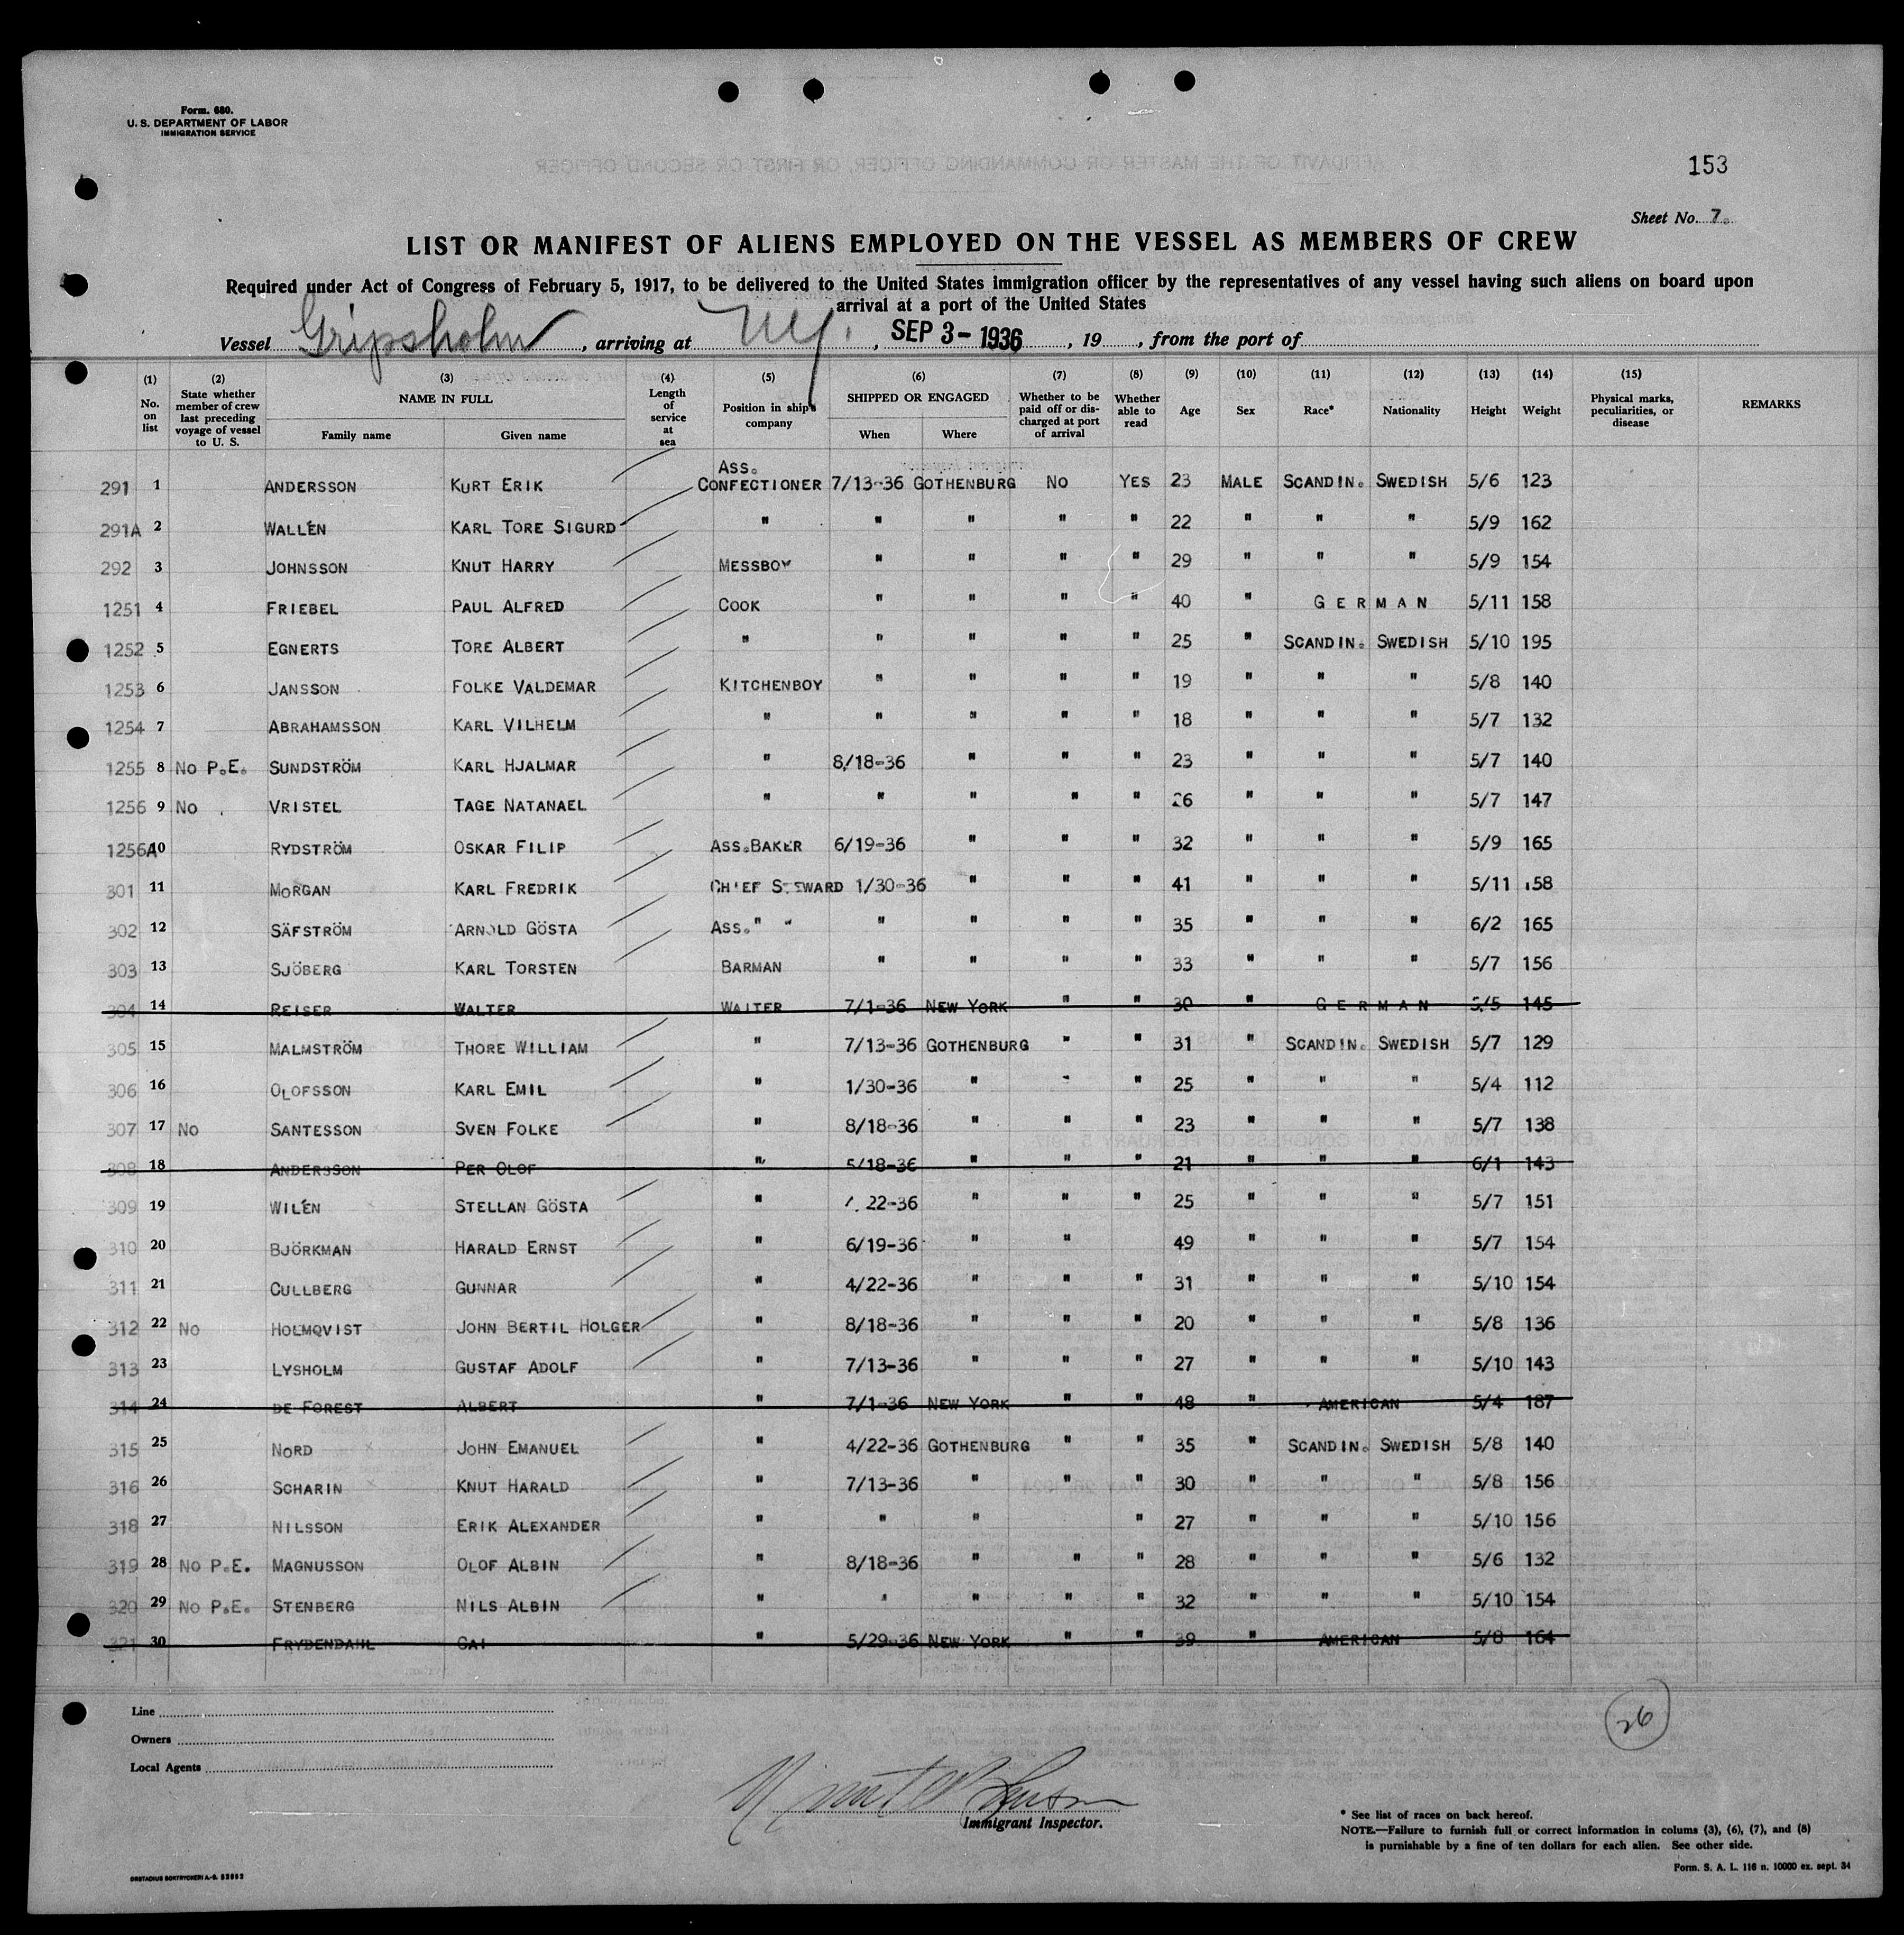 Form. 680.
U. S. DEPARTMENT OF LABOR
IMMIGRATION SERVICE
153
Sheet No. 7.
LIST OR MANIFEST OF ALIENS EMPLOYED ON THE VESSEL AS MEMBERS OF CREW
Required under Act of Congress of February 5, 1917, to be delivered to the United States immigration officer by the representatives of any vessel having such aliens on board upon
arrival at a port of the United States
Vessel Gripsholm, arriving at N.Y., SEP 3 - 1936, 19, from the port of
(1) (2) (3) (4) (5) (6) (7) (8) (9) (10) (11) (12) (13) (14) (15)
No. on list
State whether member of crew last preceding voyage of vessel to U. S.
NAME IN FULL
Family name Given name
Length of service at sea
Position in ship's company
SHIPPED OR ENGAGED
When Where
Whether to be paid off or discharged at port of arrival
Whether able to read
Age Sex Race* Nationality Height Weight
Physical marks, peculiarities, or disease
REMARKS
291 1 ANDERSSON KURT ERIK ASS. CONFECTIONER 7/13-36 GOTHENBURG NO YES 23 MALE SCANDIN. SWEDISH 5/6 123
291A 2 WALLÉN KARL TORE SIGURD " " " " " 22 " " " 5/9 162
292 3 JOHNSSON KNUT HARRY MESSBOY " " " " 29 " " " 5/9 154
1251 4 FRIEBEL PAUL ALFRED COOK " " " " 40 " GERMAN 5/11 158
1252 5 EGNERTS TORE ALBERT " " " " " 25 " SCANDIN. SWEDISH 5/10 195
1253 6 JANSSON FOLKE VALDEMAR KITCHENBOY " " " " 19 " " " 5/8 140
1254 7 ABRAHAMSSON KARL VILHELM " " " " " 18 " " " 5/7 132
1255 8 NO P.E. SUNDSTRÖM KARL HJALMAR " 8/18-36 " " " 23 " " " 5/7 140
1256 9 NO VRISTEL TAGE NATANAEL " " " " " 26 " " " 5/7 147
1256A 10 RYDSTRÖM OSKAR FILIP ASS.BAKER 6/19-36 " " " 32 " " " 5/9 165
301 11 MORGAN KARL FREDRIK CHIEF STEWARD 1/30-36 " " " 41 " " " 5/11 158
302 12 SÄFSTRÖM ARNOLD GÖSTA ASS. " " " " " " 35 " " " 6/2 165
303 13 SJÖBERG KARL TORSTEN BARMAN " " " " 33 " " " 5/7 156
304 14 REISER WALTER WAITER 7/1-36 NEW YORK " " 30 " GERMAN 5/5 145
305 15 MALMSTRÖM THORE WILLIAM " 7/13-36 GOTHENBURG " " 31 " SCANDIN. SWEDISH 5/7 129
306 16 OLOFSSON KARL EMIL " 1/30-36 " " " 25 " " " 5/4 112
307 17 NO SANTESSON SVEN FOLKE " 8/18-36 " " " 23 " " " 5/7 138
308 18 ANDERSSON PER OLOF " 5/18-36 " " " 21 " " " 6/1 143
309 19 WILÉN STELLAN GÖSTA " 22-36 " " " 25 " " " 5/7 151
310 20 BJÖRKMAN HARALD ERNST " 6/19-36 " " 49 " " " 5/7 154
311 21 CULLBERG GUNNAR " 4/22-36 " " " 31 " " " 5/10 154
312 22 NO HOLMQVIST JOHN BERTIL HOLGER " 8/18-36 " " " 20 " " " 5/8 136
313 23 LYSHOLM GUSTAF ADOLF " 7/13-36 " " " 27 " " " 5/10 143
314 24 DE FOREST ALBERT " 7/1-36 NEW YORK " " 48 " AMERICAN 5/4 187
315 25 NORD JOHN EMANUEL " 4/22-36 GOTHENBURG " " 35 " SCANDIN. SWEDISH 5/8 140
316 26 SCHARIN KNUT HARALD " 7/13-36 " " " 30 " " " 5/8 156
318 27 NILSSON ERIK ALEXANDER " " " " 27 " " " 5/10 156
319 28 NO P.E. MAGNUSSON OLOF ALBIN " 8/18-36 " " " 28 " " " 5/6 132
320 29 NO P.E. STENBERG NILS ALBIN " " " " " 32 " " " 5/10 154
321 30 FRYDENDAHL CAI " 5/29-36 NEW YORK " " 39 " AMERICAN 5/8 164
Line
Owners
Local Agents
26
Immigrant Inspector.
* See list of races on back hereof.
NOTE.—Failure to furnish full or correct information in colums (3), (6), (7), and (8)
is punishable by a fine of ten dollars for each alien. See other side.
Form. S. A. L. 116 n. 10000 ex. sept. 34